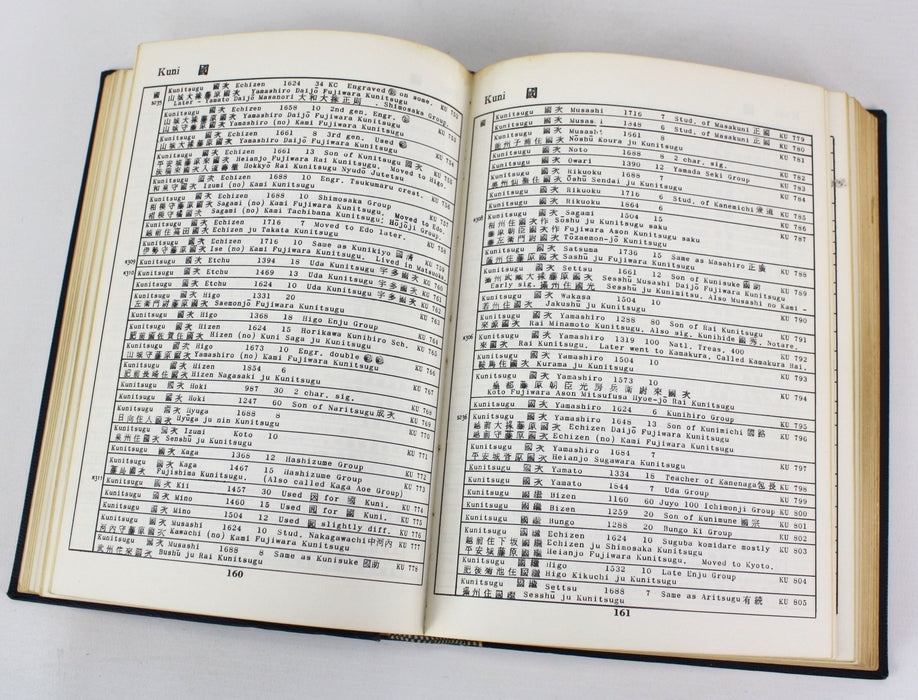 Kuni 國
國
S235
Kunitsugu 國次 Echizen 1624 34 KC Engraved on some. KU 752
山城大掾藤原國次 Yamashiro Daijō Fujiwara Kunitsugu
Later - Yamato Daijō Masanori 大和大掾正則 . Shimosaka Group.
Kunitsugu 國次 Echizen 1658 10 2nd gen. Engr.
山城大掾藤原國次 Yamashiro Daijō Fujiwara Kunitsugu
山城守藤原國次 Yamashiro (no) Kami Fujiwara Kunitsugu
Kunitsugu 國次 Echizen 1661 8 3rd gen. Used
山城大掾藤原國次 Yamashiro Daijō Fujiwara Kunitsugu
Kunitsugu 國次 Echizen 1661 13 Son of Kunitsugu 國次 KU
平安城藤原來國次 Heianjo Fujiwara Rai Kunitsugu. Moved to Edo.
Dokkyō Rai Kunitsugu Nyudo Jutetsu
Kunitsugu 國次 Echizen 1688 10 Engr. Tsukumaru crest.
和泉守國次 Izumi (no) Kami Kunitsugu
Kunitsugu 國次 Echizen 1688 10 Shimosaka Group KU 757
相模守藤原國次 Sagami (no) Kami Fujiwara Kunitsugu. Moved to Edo.
相模守橘國次 Sagami (no) Kami Tachibana Kunitsugu.
Kunitsugu 國次 Echizen 1716 7 Moved to Edo later. KU 758
越前住高田國次 Echizen ju Takata Kunitsugu
Kunitsugu 國次 Echizen 1716 10 Same as Kunikiyo 國清 KU 759
伊勢守藤原國次 Ise (no) Kami Fujiwara Kunitsugu. Lived in Matsuoka.
K309 Kunitsugu 國次 Etchu 1394 18 Uda Kunitsugu 宇多國次 KU 760
K310 Kunitsugu 國次 Etchu 1469 13 Uda Kunitsugu 宇多國次 KU 761
Kunitsugu 國次 Etchu 1624 10 Uda Kunitsugu 宇多國次 KU 762
Kunitsugu 國次 Higo 1331 20 KU 763
左衛門尉藤原國次 Saemonjō Fujiwara Kunitsugu
Kunitsugu 國次 Higo 1368 18 Higo Enju Group KU 764
Kunitsugu 國次 Hizen 1624 15 Horikawa Kunihiro Sch. KU 765
肥前國佐賀住國次 Hizen (no) Kuni Saga ju Kunitsugu
Kunitsugu 國次 Higo 1673 10 Engr. double KU 766
山城守藤原國次 Yamashiro (no) Kami Fujiwara Kunitsugu
Kunitsugu 國次 Hizen 1854 6 KU 767
肥前長崎住國次 Hizen Nagasaki ju Kunitsugu
Kunitsugu 國次 Hoki 987 30 2 char. sig. KU 768
Kunitsugu 國次 Hoki 1247 60 Son of Naritsugu 成次 KU 769
Kunitsugu 國次 Hyuga 1688 8 KU 770
日向住人國次 Hyūga ju nin Kunitsugu
Kunitsugu 國次 Izumi Koto 10 KU 771
泉州住國次 Senshū ju Kunitsugu
Kunitsugu 國次 Kaga 1368 12 Hashizume Group KU 772
Kunitsugu 國次 Kaga 1467 15 Hashizume Group KU 773
藤島國次 Fujishima Kunitsugu. (Also called Kaga Aoe Group)
K311 Kunitsugu 國次 Kii 1457 30 Used 因 for 國 Kuni. KU 774
Kunitsugu 國次 Mino 1460 15 Used for 國 Kuni. KU 775
Kunitsugu 國次 Mino 1504 12 Used slightly diff. KU 776
Kunitsugu 國次 Musashi 1624 10 Stud. Nakagawachi 中河內 KU 777
河內守藤原國次 Kawachi (no) Kami Fujiwara Kunitsugu
Kunitsugu 國次 Musashi 1688 8 Same as Kunisuke 國助 KU 778
武州住來國次 Bushū ju Rai Kunitsugu
160
Kuni 國
國
Kunitsugu 國次 Musashi 1716 7 Stud. of Masakuni 正國 KU 779
Kunitsugu 國次 Musashi 1848 6 Stud. of Masakuni 正國 KU 780
Kunitsugu 國次 Musashi 1661 8 KU 781
Nōshū Koura ju Kunitsugu
Kunitsugu 國次 Noto 1688 8 2 char. sig. KU 782
Kunitsugu 國次 Owari 1390 12 Yamada Seki Group KU 783
Kunitsugu 國次 Rikuoku 1688 7 KU 784
奥州仙臺住國次 Ōshū Sendai ju Kunitsugu
Kunitsugu 國次 Rikuoku 1716 6 Stud. of Kanemichi 兼道 KU 785
Kunitsugu 國次 Rikuoku 1864 6 KU 786
K308 Kunitsugu 國次 Sagami 1504 15 KU 787
相州住國次作 Sōshū ju Kunitsugu saku
藤原朝臣國次作 Fujiwara Ason Kunitsugu saku
藤左衛門尉國次 Tōzaemon-jō Kunitsugu
Kunitsugu 國次 Satsuma 1736 15 Same as Masahiro 正廣 KU 788
薩州住藤原國次 Sashū ju Fujiwara Kunitsugu
Kunitsugu 國次 Settsu 1661 12 Son of Kunisuke 國助 KU 789
攝州武藏大掾藤原國次 Sesshū Musashi Daijō Fujiwara Kunitsugu
Early sig. 攝州住國光 Sesshū ju Kunimitsu. Also Musashi no Kami -
Kunitsugu 國次 Wakasa 1504 10 KU 790
若州住國次 Jakushū ju Kunitsugu
Kunitsugu 國次 Yamashiro 1288 80 Son of Rai Kunitsugu KU 791
來源國次 Rai Minamoto Kunitsugu. Also sig. Kunihide 國秀. Notare.
K306 Kunitsugu 國次 Yamashiro 1319 100 Natl. Treas. 400 KU 792
來國次 Rai Kunitsugu. Later went to Kamakura. Called Kamakura Rai.
Kunitsugu 國次 Yamashiro 1504 10 KU 793
鞍馬住國次 Kurama ju Kunitsugu
Kunitsugu 國次 Yamashiro 1573 10 KU 794
京都藤原朝臣光房兵衛尉來國次
Koto Fujiwara Ason Mitsufusa Hyoe-jō Rai Kunitsugu
Kunitsugu 國次 Yamashiro 1624 6 Kunihiro Group KU 795
S236 Kunitsugu 國次 Yamashiro 1648 13 Son of Kunimichi 國路 KU 796
越前大掾藤原國次 Echizen Daijō Fujiwara Kunitsugu
越前守藤原國次 Echizen (no) Kami Fujiwara Kunitsugu
Kunitsugu 國次 Yamashiro 1684 7 KU 797
平安城菅原國次 Heianjo Sugawara Kunitsugu
Kunitsugu 國次 Yamato 1334 18 Teacher of Kanenaga 包長 KU 798
Kunitsugu 國次 Yamato 1844 7 Uda Group KU 799
Kunitsugu 國繼 Bizen 1160 60 Juyo 100 Ichimonji Group KU 800
Kunitsugu 國繼 Bizen 1259 20 Son of Kunimune 國宗 KU 801
Kunitsugu 國繼 Bungo 1288 20 Bungo Ki Group KU 802
Kunitsugu 國繼 Echizen 1624 10 Suguba komidare mostly KU 803
越前住下坂國繼 Echizen ju Shimosaka Kunitsugu
平安城藤原國繼 Heianjo Fujiwara Kunitsugu. Moved to Kyoto.
Kunitsugu 國繼 Higo 1532 10 Late Enju Group KU 804
肥後菊池住國繼 Higo Kikuchi ju Kunitsugu
Kunitsugu 國繼 Settsu 1688 7 Same as Aritsugu 有続 KU 805
攝州住國繼 Sesshū ju Kunitsugu
161